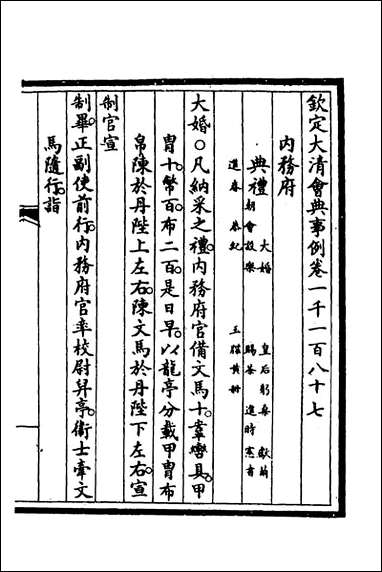 欽定大清會典事例卷一千一百八十七
內務府
典禮 大婚 皇后躬桑 獻繭
朝會設樂 賜茶 進時憲書
進春 恭紀 玉牒黃冊
大婚○凡納采之禮內務府官備文馬十鞌轡具甲
冑十幣百布二百是日早以龍亭分載甲冑布
帛陳於丹陛上左右陳文馬於丹陛下左右宣
制官宣
制畢正副使前行內務府官率校尉舁亭衞士牽文
馬隨行詣